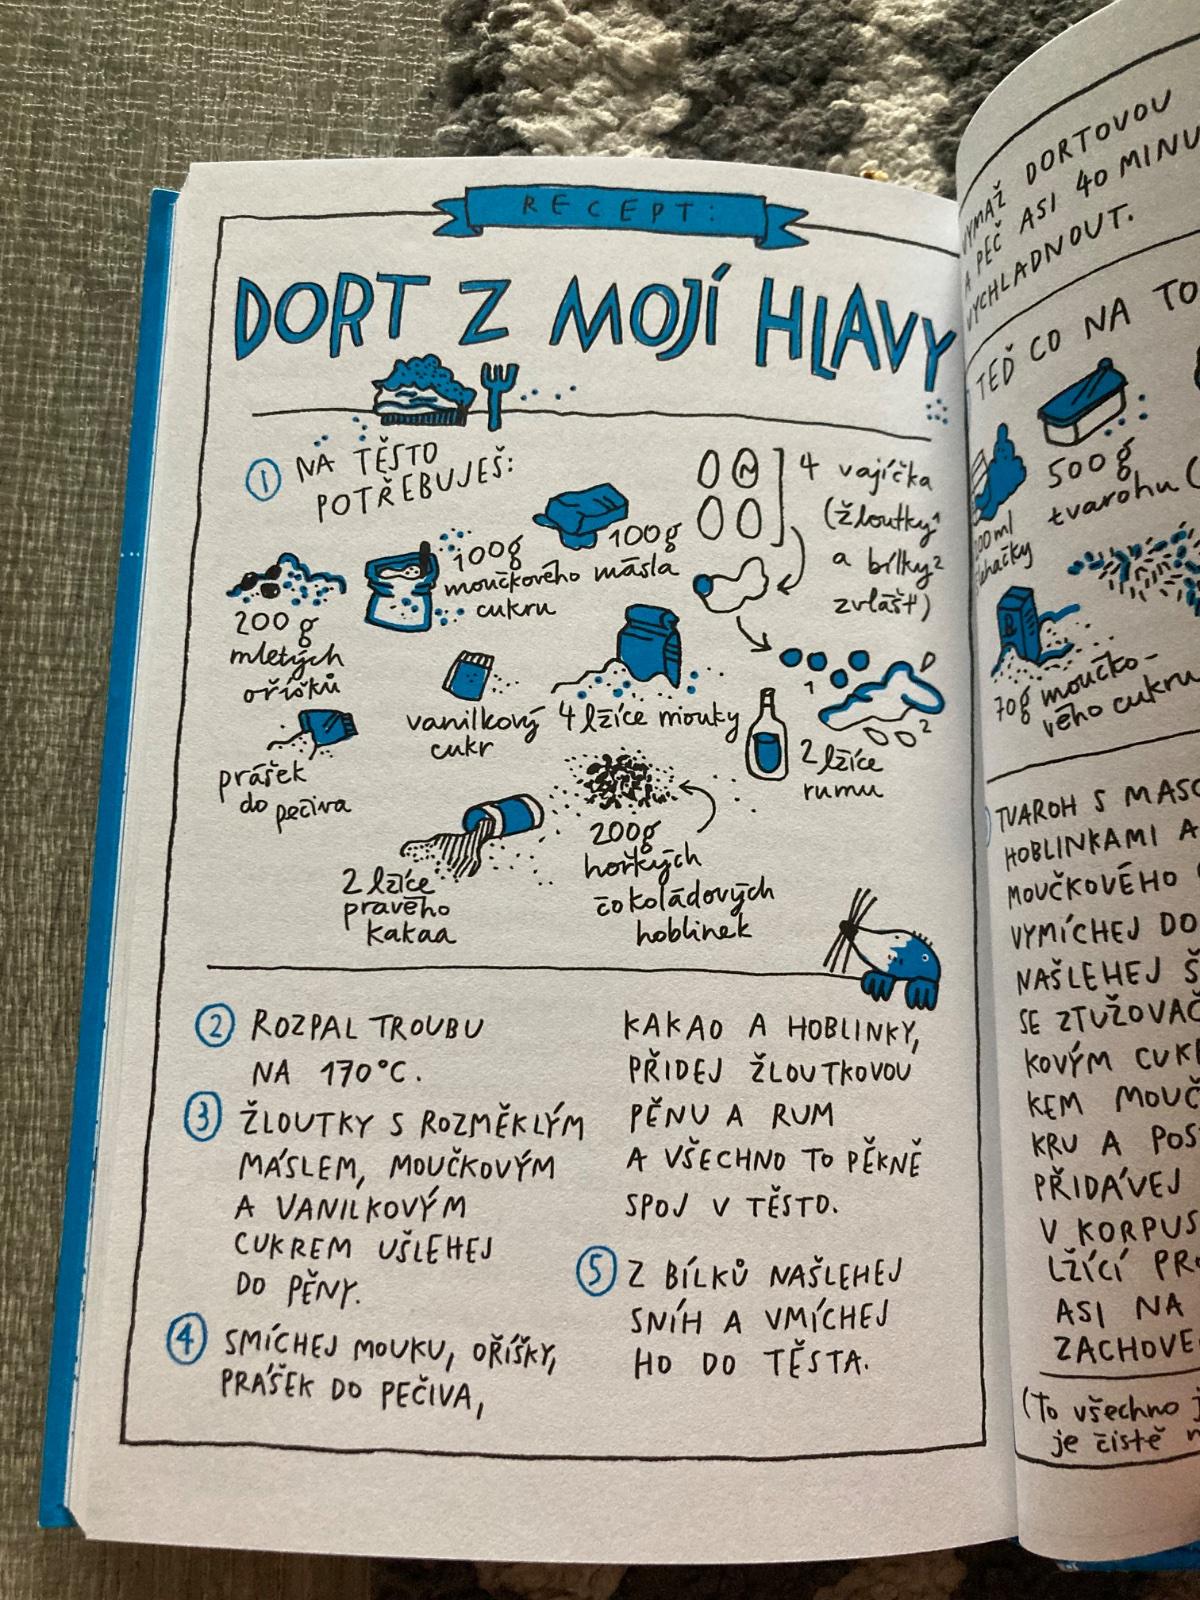 RECEPT:
DORT Z MOJÍ HLAVY
1 NA TĚSTO
POTŘEBUJEŠ:
200 g
mletých
oříšků
100g
moučkového
cukru
100g
másla
4 vajíčka
(žloutky1
a bílky2
zvlášť)
prášek
do pečiva
vanilkový
cukr
4 lžíce mouky
1
2
2 lžíce
rumu
2 lžíce
pravého
kakaa
200g
hořkých
čokoládových
hoblinek
2 ROZPAL TROUBU
NA 170°C.
3 ŽLOUTKY S ROZMĚKLÝM
MÁSLEM, MOUČKOVÝM
A VANILKOVÝM
CUKREM UŠLEHEJ
DO PĚNY.
4 SMÍCHEJ MOUKU, OŘÍŠKY,
PRÁŠEK DO PEČIVA,
KAKAO A HOBLINKY,
PŘIDEJ ŽLOUTKOVOU
PĚNU A RUM
A VŠECHNO TO PĚKNĚ
SPOJ V TĚSTO.
5 Z BÍLKŮ NAŠLEHEJ
SNÍH A VMÍCHEJ
HO DO TĚSTA.
VYMAŽ DORTOVOU
A PEČ ASI 40 MINU
VYCHLADNOUT.
TEĎ CO NA TO
500g
tvarohu (
70g moučko-
vého cukru
TVAROH S MASC
HOBLINKAMI A
MOUČKOVÉHO
VYMÍCHEJ DO
NAŠLEHEJ Š
SE ZTUŽOVAČ
KOVÝM CUKR
KEM MOUČ
KRU A POS
PŘIDÁVEJ
V KORPUS
LŽÍCÍ PRO
ASI NA
ZACHOVE
(To všechno j
je čistě n